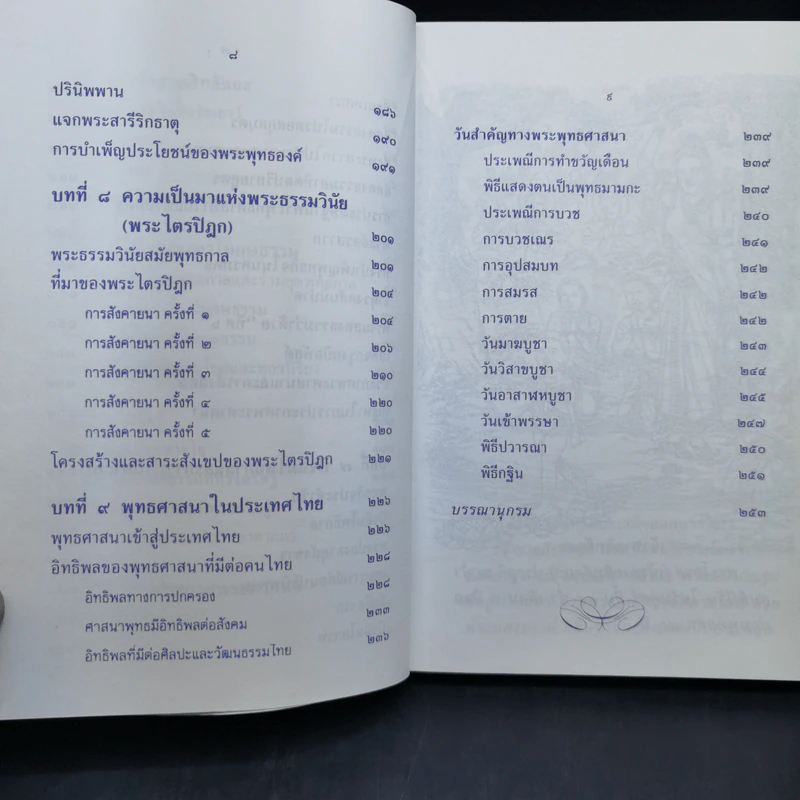 ๘
ปรินิพพาน ๑๘๖
แจกพระสารีริกธาตุ ๑๙๐
การบำเพ็ญประโยชน์ของพระพุทธองค์ ๑๙๑
บทที่ ๘ ความเป็นมาแห่งพระธรรมวินัย
(พระไตรปิฎก) ๒๐๑
พระธรรมวินัยสมัยพุทธกาล ๒๐๑
ที่มาของพระไตรปิฎก ๒๐๔
การสังคายนา ครั้งที่ ๑ ๒๐๔
การสังคายนา ครั้งที่ ๒ ๒๐๖
การสังคายนา ครั้งที่ ๓ ๒๑๐
การสังคายนา ครั้งที่ ๔ ๒๒๐
การสังคายนา ครั้งที่ ๕ ๒๒๐
โครงสร้างและสาระสังเขปของพระไตรปิฎก ๒๒๑
บทที่ ๙ พุทธศาสนาในประเทศไทย ๒๒๖
พุทธศาสนาเข้าสู่ประเทศไทย ๒๒๖
อิทธิพลของพุทธศาสนาที่มีต่อคนไทย ๒๒๘
อิทธิพลทางการปกครอง ๒๒๘
ศาสนาพุทธมีอิทธิพลต่อสังคม ๒๓๓
อิทธิพลที่มีต่อศิลปะและวัฒนธรรมไทย ๒๓๖
๙
วันสำคัญทางพระพุทธศาสนา ๒๓๙
ประเพณีการทำขวัญเดือน ๒๓๙
พิธีแสดงตนเป็นพุทธมามกะ ๒๓๙
ประเพณีการบวช ๒๔๐
การบวชเณร ๒๔๑
การอุปสมบท ๒๔๒
การสมรส ๒๔๒
การตาย ๒๔๒
วันมาฆบูชา ๒๔๓
วันวิสาขบูชา ๒๔๔
วันอาสาฬหบูชา ๒๔๕
วันเข้าพรรษา ๒๔๗
พิธีปวารณา ๒๕๐
พิธีกฐิน ๒๕๑
บรรณานุกรม ๒๕๓